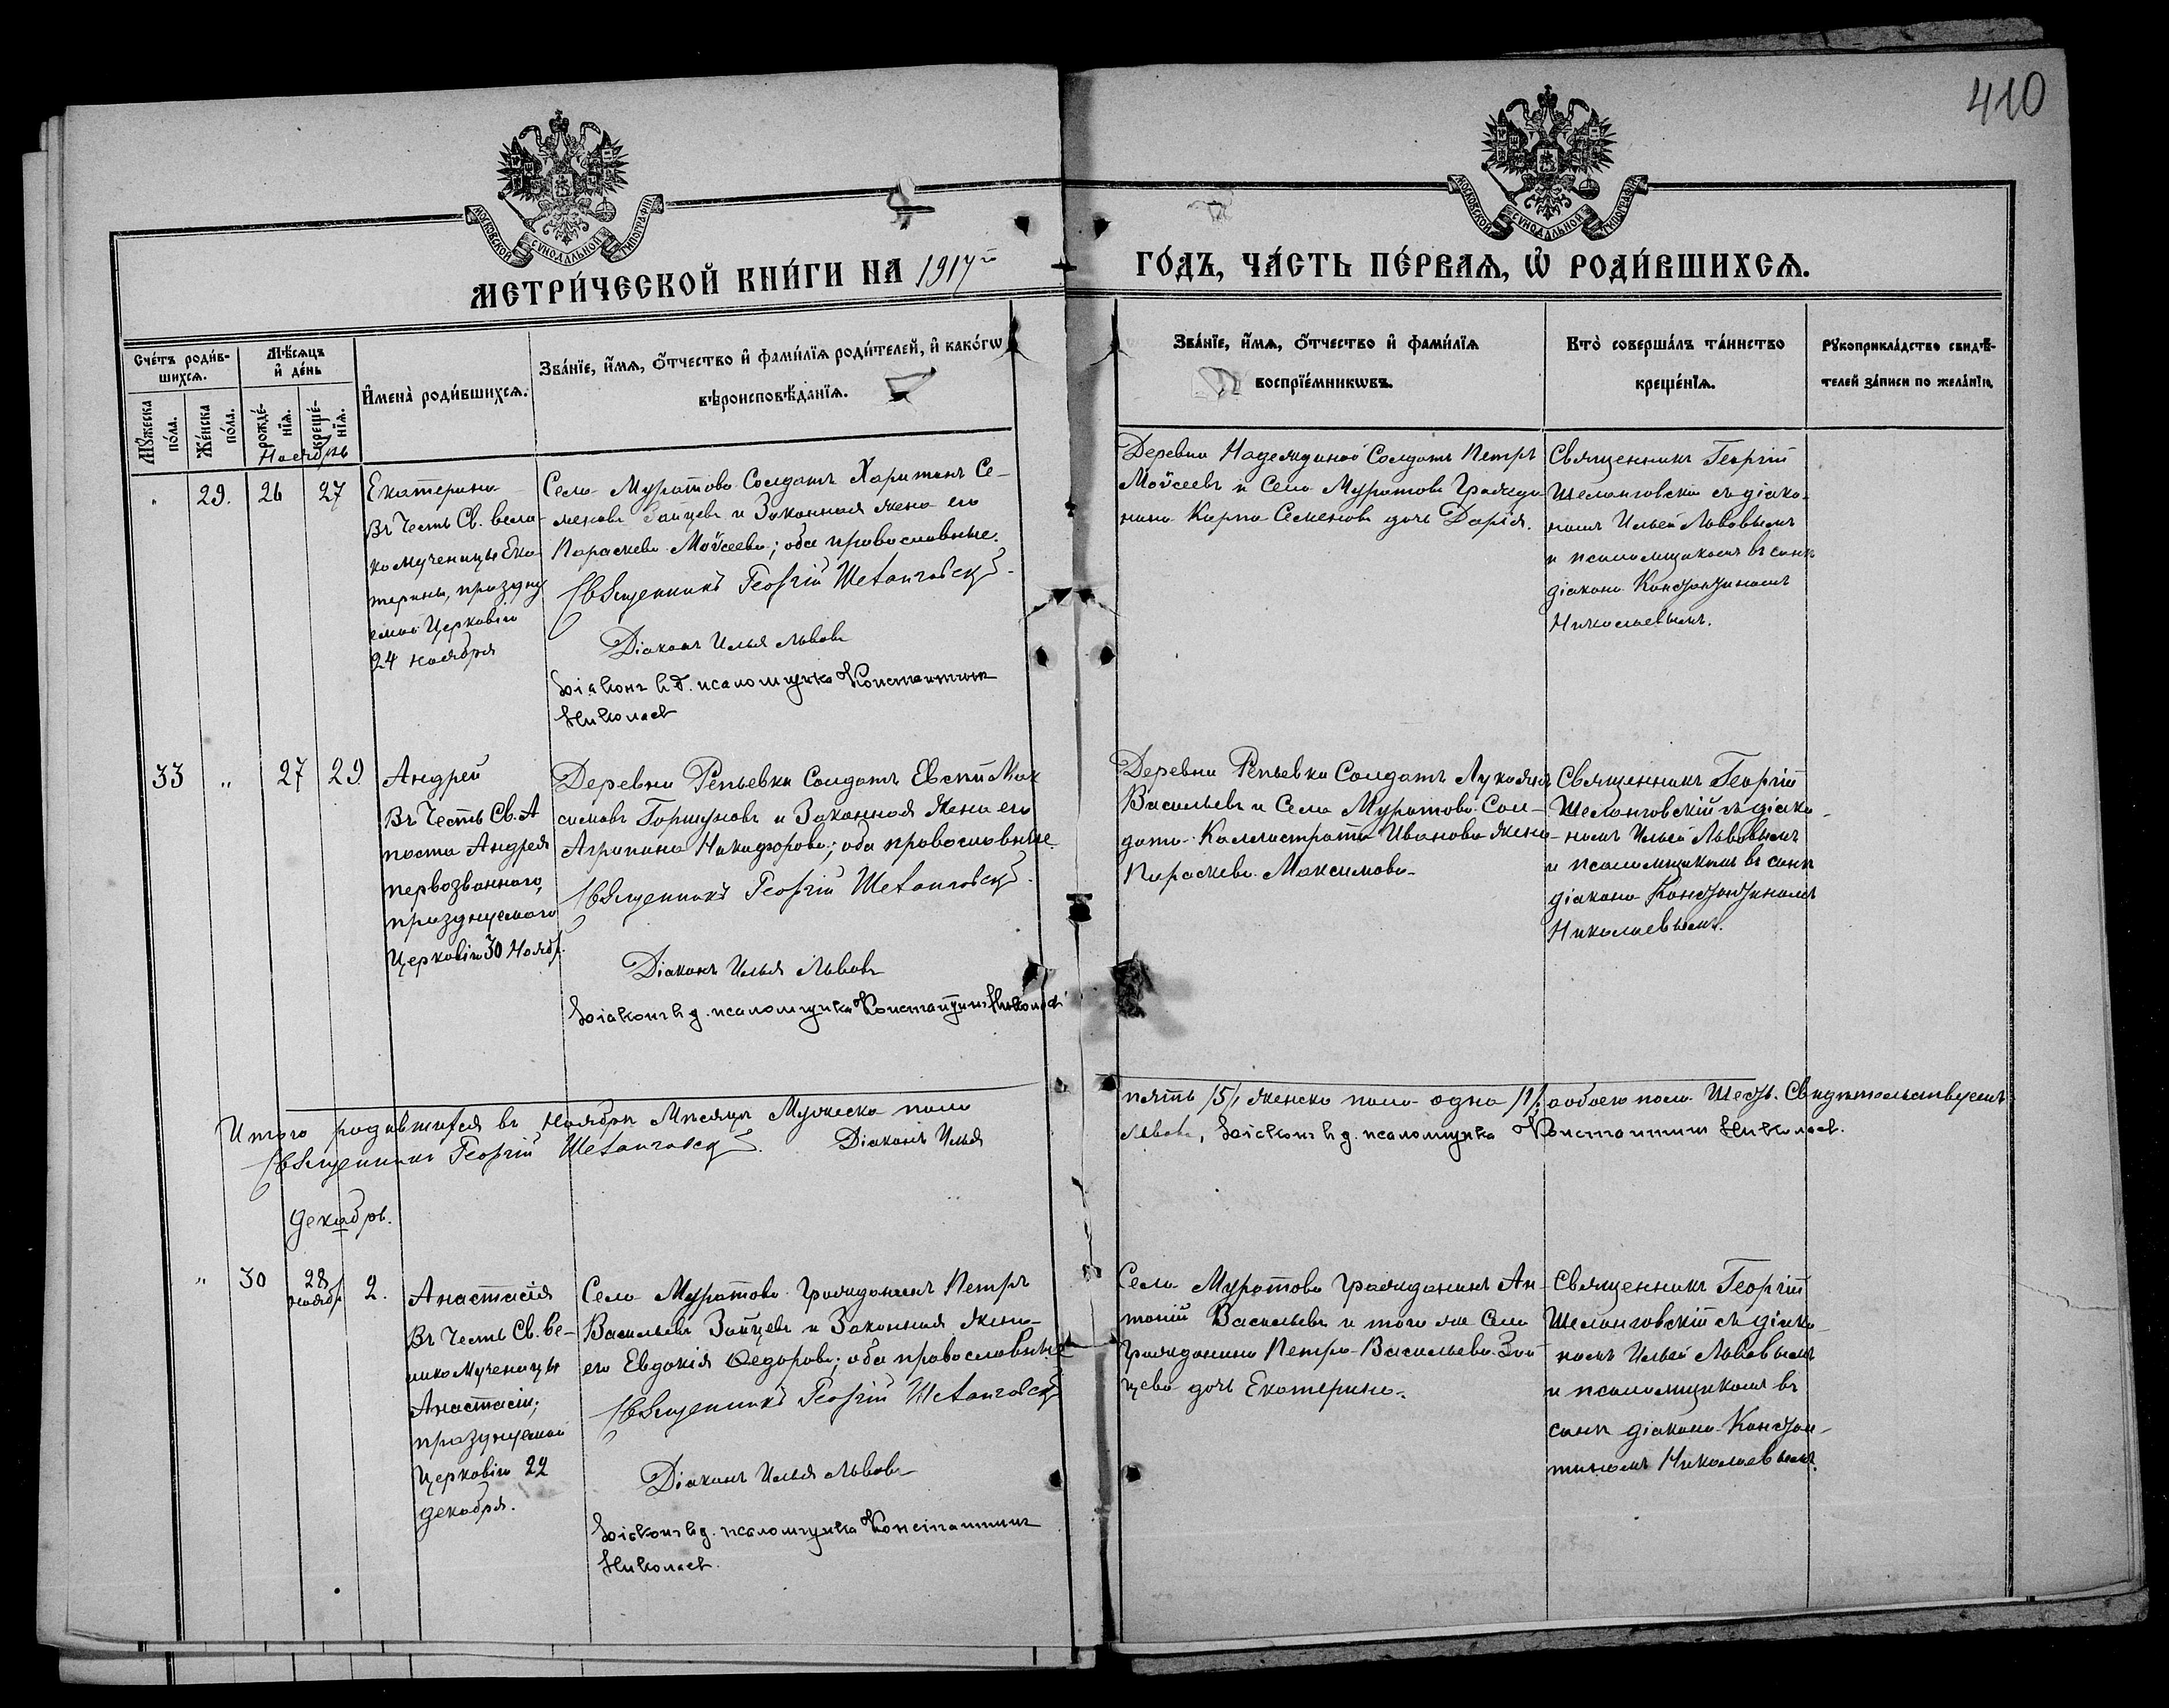 410
МОСКОВСКОЙ СѴНОДАЛЬНОЙ ТИПОГРАФІИ
МОСКОВСКОЙ СѴНОДАЛЬНОЙ ТИПОГРАФІИ
МЕТРИ́ЧЕСКОЙ КНИ́ГИ НА 1917й
ГО́ДЪ, ЧА́СТЬ ПЕ́РВАѦ, Ѡ҆ РОДИ́ВШИХСѦ.
Сче́тъ роди́в-
шихсѧ.
Мѣ́сѧцъ
и҆ де́нь
Мꙋ́жеска
по́ла.
Же́нска
по́ла.
рожде́-
нїѧ.
креще́-
нїѧ.
И҆мена̀ роди́вшихсѧ.
Зва́нїе, и҆́мѧ, ѻ҆́тчество и҆ фами́лїѧ роди́телей, и҆ како́гѡ
вѣроисповѣ́данїѧ.
Зва́нїе, и҆́мѧ, ѻ҆́тчество и҆ фами́лїѧ
воспрїе́мникѡвъ.
Кто̀ соверша́лъ та́инство
креще́нїѧ.
Рꙋкоприкла́дство свидѣ́-
телей за́писи по жела́нїю.
Ноябрь
" 29. 26 27
Екатерина
Въ Честь Св. вели-
комученицы Ека
терины, праздну
емой Церковію
24 ноября
Села Муратова Солдатъ Харитонъ Се-
меновъ Зайцевъ и Законная жена его
Параскева Моѵсеева; оба православные.
Священникъ Георгій Шеланговскій
Діаконъ Илья Львовъ
Діаконъ н д. псаломщика Константинъ
Николаевъ
Деревни Надеждиной Солдатъ Петръ
Моѵсеевъ и Села Муратова Гражда
нина Карпа Семенова дочь Дарія.
Священникъ Георгій
Шеланговскій съ діако-
номъ Ильей Львовымъ
и псаломщикомъ въ санѣ
діакона Константиномъ
Николаевымъ.
33 " 27 29
Андрей
Въ Честь Св. А
постa Андрея
первозваннаго,
празднуемаго
Церковію 30 Ноябр.
Деревни Репьевки Солдатъ Евстй Мак
симовъ Горшуновъ и Законная Жена его
Агрипина Никифорова; оба православные.
Священникъ Георгій Шеланговскій
Діаконъ Илья Львовъ
Діаконъ н д. псаломщика Константинъ Николаевъ
Деревни Репьевки Солдатъ Лукоянъ
Васильевъ и Села Муратова Сол-
дата Каллистрата Иванова жена
Параскева Максимова
Священникъ Георгій
Шеланговскій съ діако-
номъ Ильей Львовымъ
и псаломщикомъ въ санѣ
діакона Константиномъ
Николаевымъ.
Итого родившихся въ Ноябрѣ Мѣсяцѣ Мужеска пола
пять /5/, женска пола одна /1/, а обоего пола Шесть. Свидѣтельствуемъ
Священникъ Георгій Шеланговскій. Діаконъ Илья
Львовъ, Діаконъ н д. псаломщика Константинъ Николаевъ.
Декабрь.
" 30 28 Ноябр 2.
Анастасія
Въ Честь Св. ве-
ликомученицы
Анастасіи,
празднуемой
Церковію 22
декабря.
Села Муратова Гражданинъ Петръ
Васильевъ Зайцевъ и Законная Жена
его Евдокія Ѳедорова; оба православные
Священникъ Георгій Шеланговскій
Діаконъ Илья Львовъ
Діаконъ н д. псаломщика Константинъ
Николаевъ.
Села Муратова Гражданинъ Ан-
тоній Васильевъ и того же Села
Гражданина Петра Васильева Зай
цева дочь Екатерина.
Священникъ Георгій
Шеланговскій съ діако-
номъ Ильей Львовымъ
и псаломщикомъ въ
санѣ діакона Констан-
тиномъ Николаевымъ.